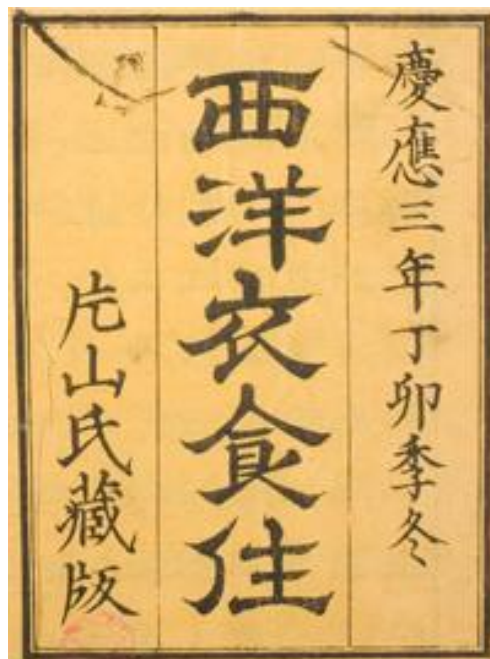 慶應三年丁卯季冬
西洋衣食住
片山氏藏版